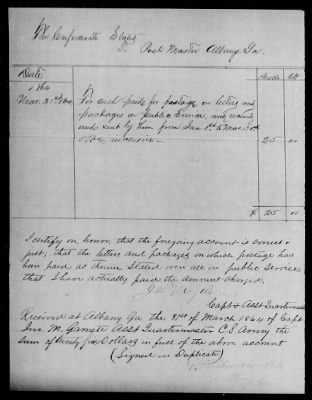 The Confederate States
To Post Master Albany Ga.
Date
Dolls Cts
1864
Mar. 31st 1864
For cash paid for postage on letters and
packages on public Service, and received
and sent by him from Jan 1st to Mar. 31st
1864, inclusive —
25 00
$ 25 00
I certify on honor, that the foregoing account is correct &
just; that the letters and packages on which postage has
been paid as herein stated were all on public service,
that I have actually paid the amount charged.
Capt & Asst Quartermaster
Received at Albany Ga the 31st of March 1864 of Capt
Jno. M. Garrett Asst Quartermaster C.S. Army the
sum of twenty five Dollars in full of the above account
(Signed in Duplicate)